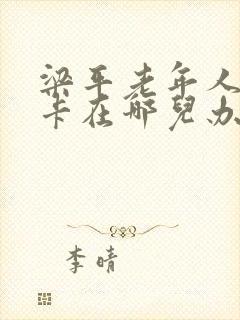 梁平老年人
卡在哪兒办
李晴